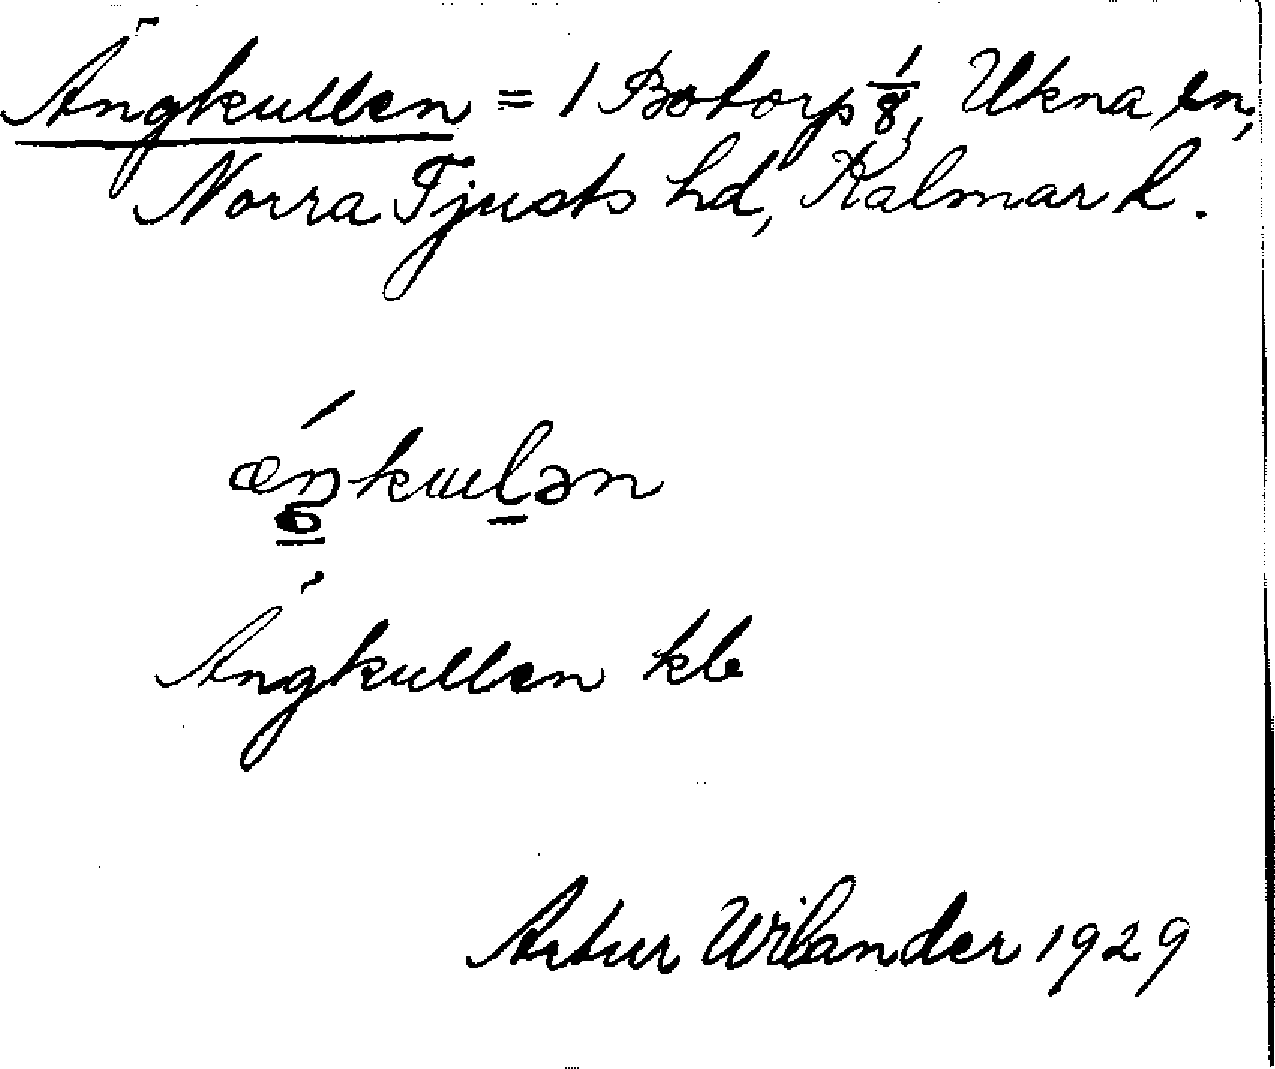 Ängkullen = 1 Botorp 1/8, Ukna sn,
Norra Tjusts hd, Kalmar l.
ǽŋkuḻən
Ängkullen kle
Artur Wilander 1929